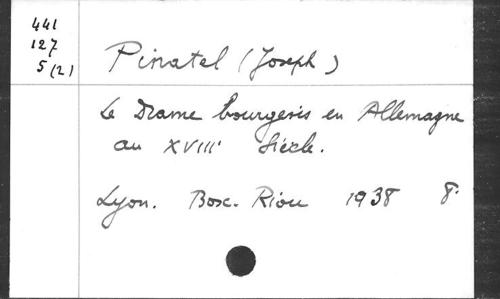 441
127
5(2)
Pinatel (Joseph)
Le Drame bourgeois en Allemagne
au XVIIIe Siècle.
Lyon. Bosc. Riou 1938 8°